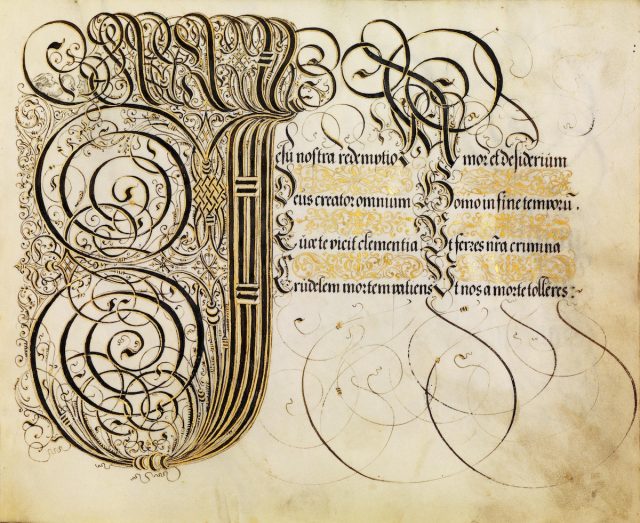 Jesu nostra redemptio Amor et desiderium
Deus creator omnium Homo in fine temporū.
Quæ te vicit clementia Vt ferres nr̄a crimina
Crudelem mortem patiens Vt nos a morte tolleres: